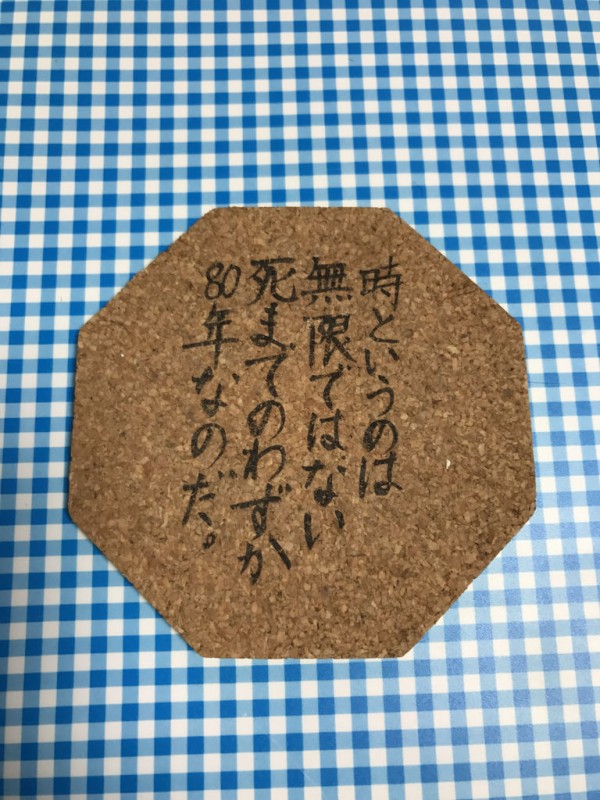 時というのは
無限ではない
死までのわずか
80年なのだ。